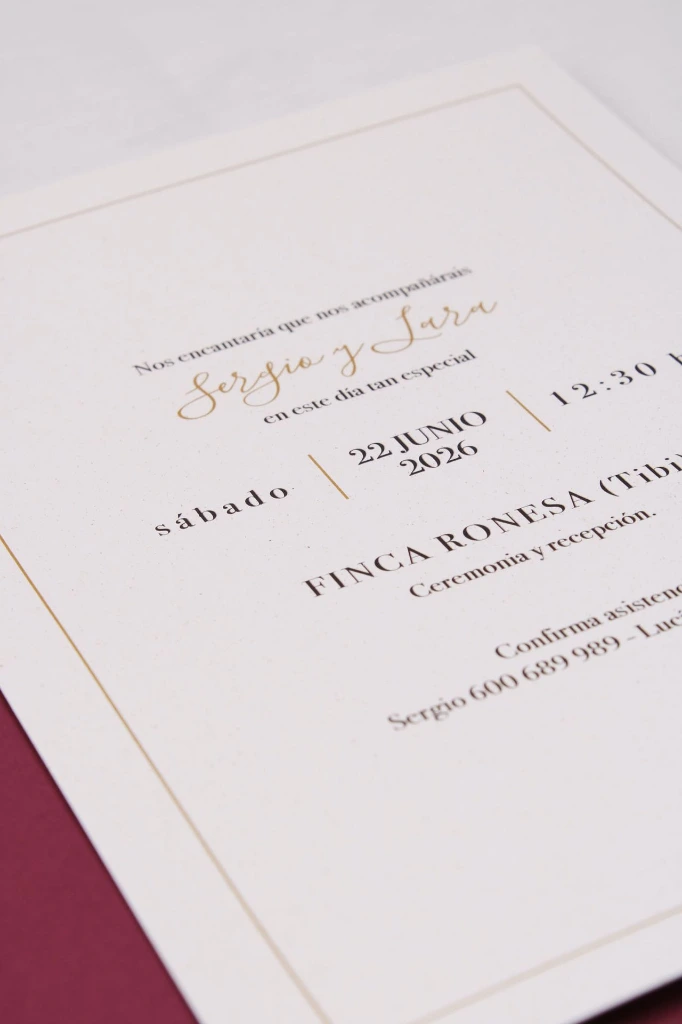 Nos encantaría que nos acompañárais
Sergio y Lara
en este día tan especial
sábado
22 JUNIO
2026
12:30 h
FINCA RONESA (Tibi)
Ceremonia y recepción.
Confirma
Sergio 600 689 989 -